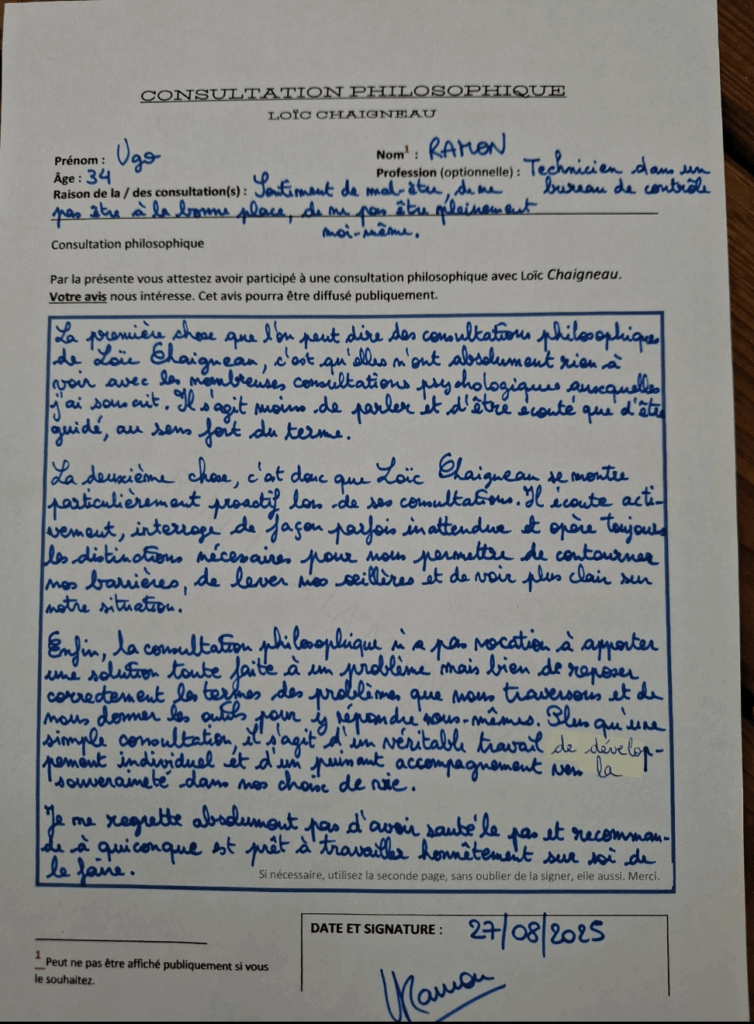 CONSULTATION PHILOSOPHIQUE
LOÏC CHAIGNEAU
Prénom : Ugo
Nom¹ : RAMON
Âge : 34
Profession (optionnelle) : Technicien dans un bureau de contrôle
Raison de la / des consultation(s) : Sentiment de mal-être, de ne
pas être à la bonne place, de ne pas être pleinement
moi-même.
Consultation philosophique
Par la présente vous attestez avoir participé à une consultation philosophique avec Loïc Chaigneau.
Votre avis nous intéresse. Cet avis pourra être diffusé publiquement.
La première chose que l'on peut dire des consultations philosophiques
de Loïc Chaigneau, c'est qu'elles n'ont absolument rien à
voir avec les nombreuses consultations psychologiques auxquelles
j'ai souscrit. Il s'agit moins de parler et d'être écouté que d'être
guidé, au sens fort du terme.
La deuxième chose, c'est donc que Loïc Chaigneau se montre
particulièrement proactif lors de ses consultations. Il écoute acti-
vement, interroge de façon parfois inattendue et opère toujours
les distinctions nécessaires pour nous permettre de contourner
nos barrières, de lever nos œillères et de voir plus clair sur
notre situation.
Enfin, la consultation philosophique n'a pas vocation à apporter
une solution toute faite à un problème mais bien de reposer
correctement les termes des problèmes que nous traversons et de
nous donner les outils pour y répondre nous-mêmes. Plus qu'une
simple consultation, il s'agit d'un véritable travail de dévelop-
pement individuel et d'un puissant accompagnement vers la
souveraineté dans nos choix de vie.
Je ne regrette absolument pas d'avoir sauté le pas et recomman-
de à quiconque est prêt à travailler honnêtement sur soi de
le faire.
Si nécessaire, utilisez la seconde page, sans oublier de la signer, elle aussi. Merci.
DATE ET SIGNATURE : 27/08/2025
URamon
¹ Peut ne pas être affiché publiquement si vous
le souhaitez.